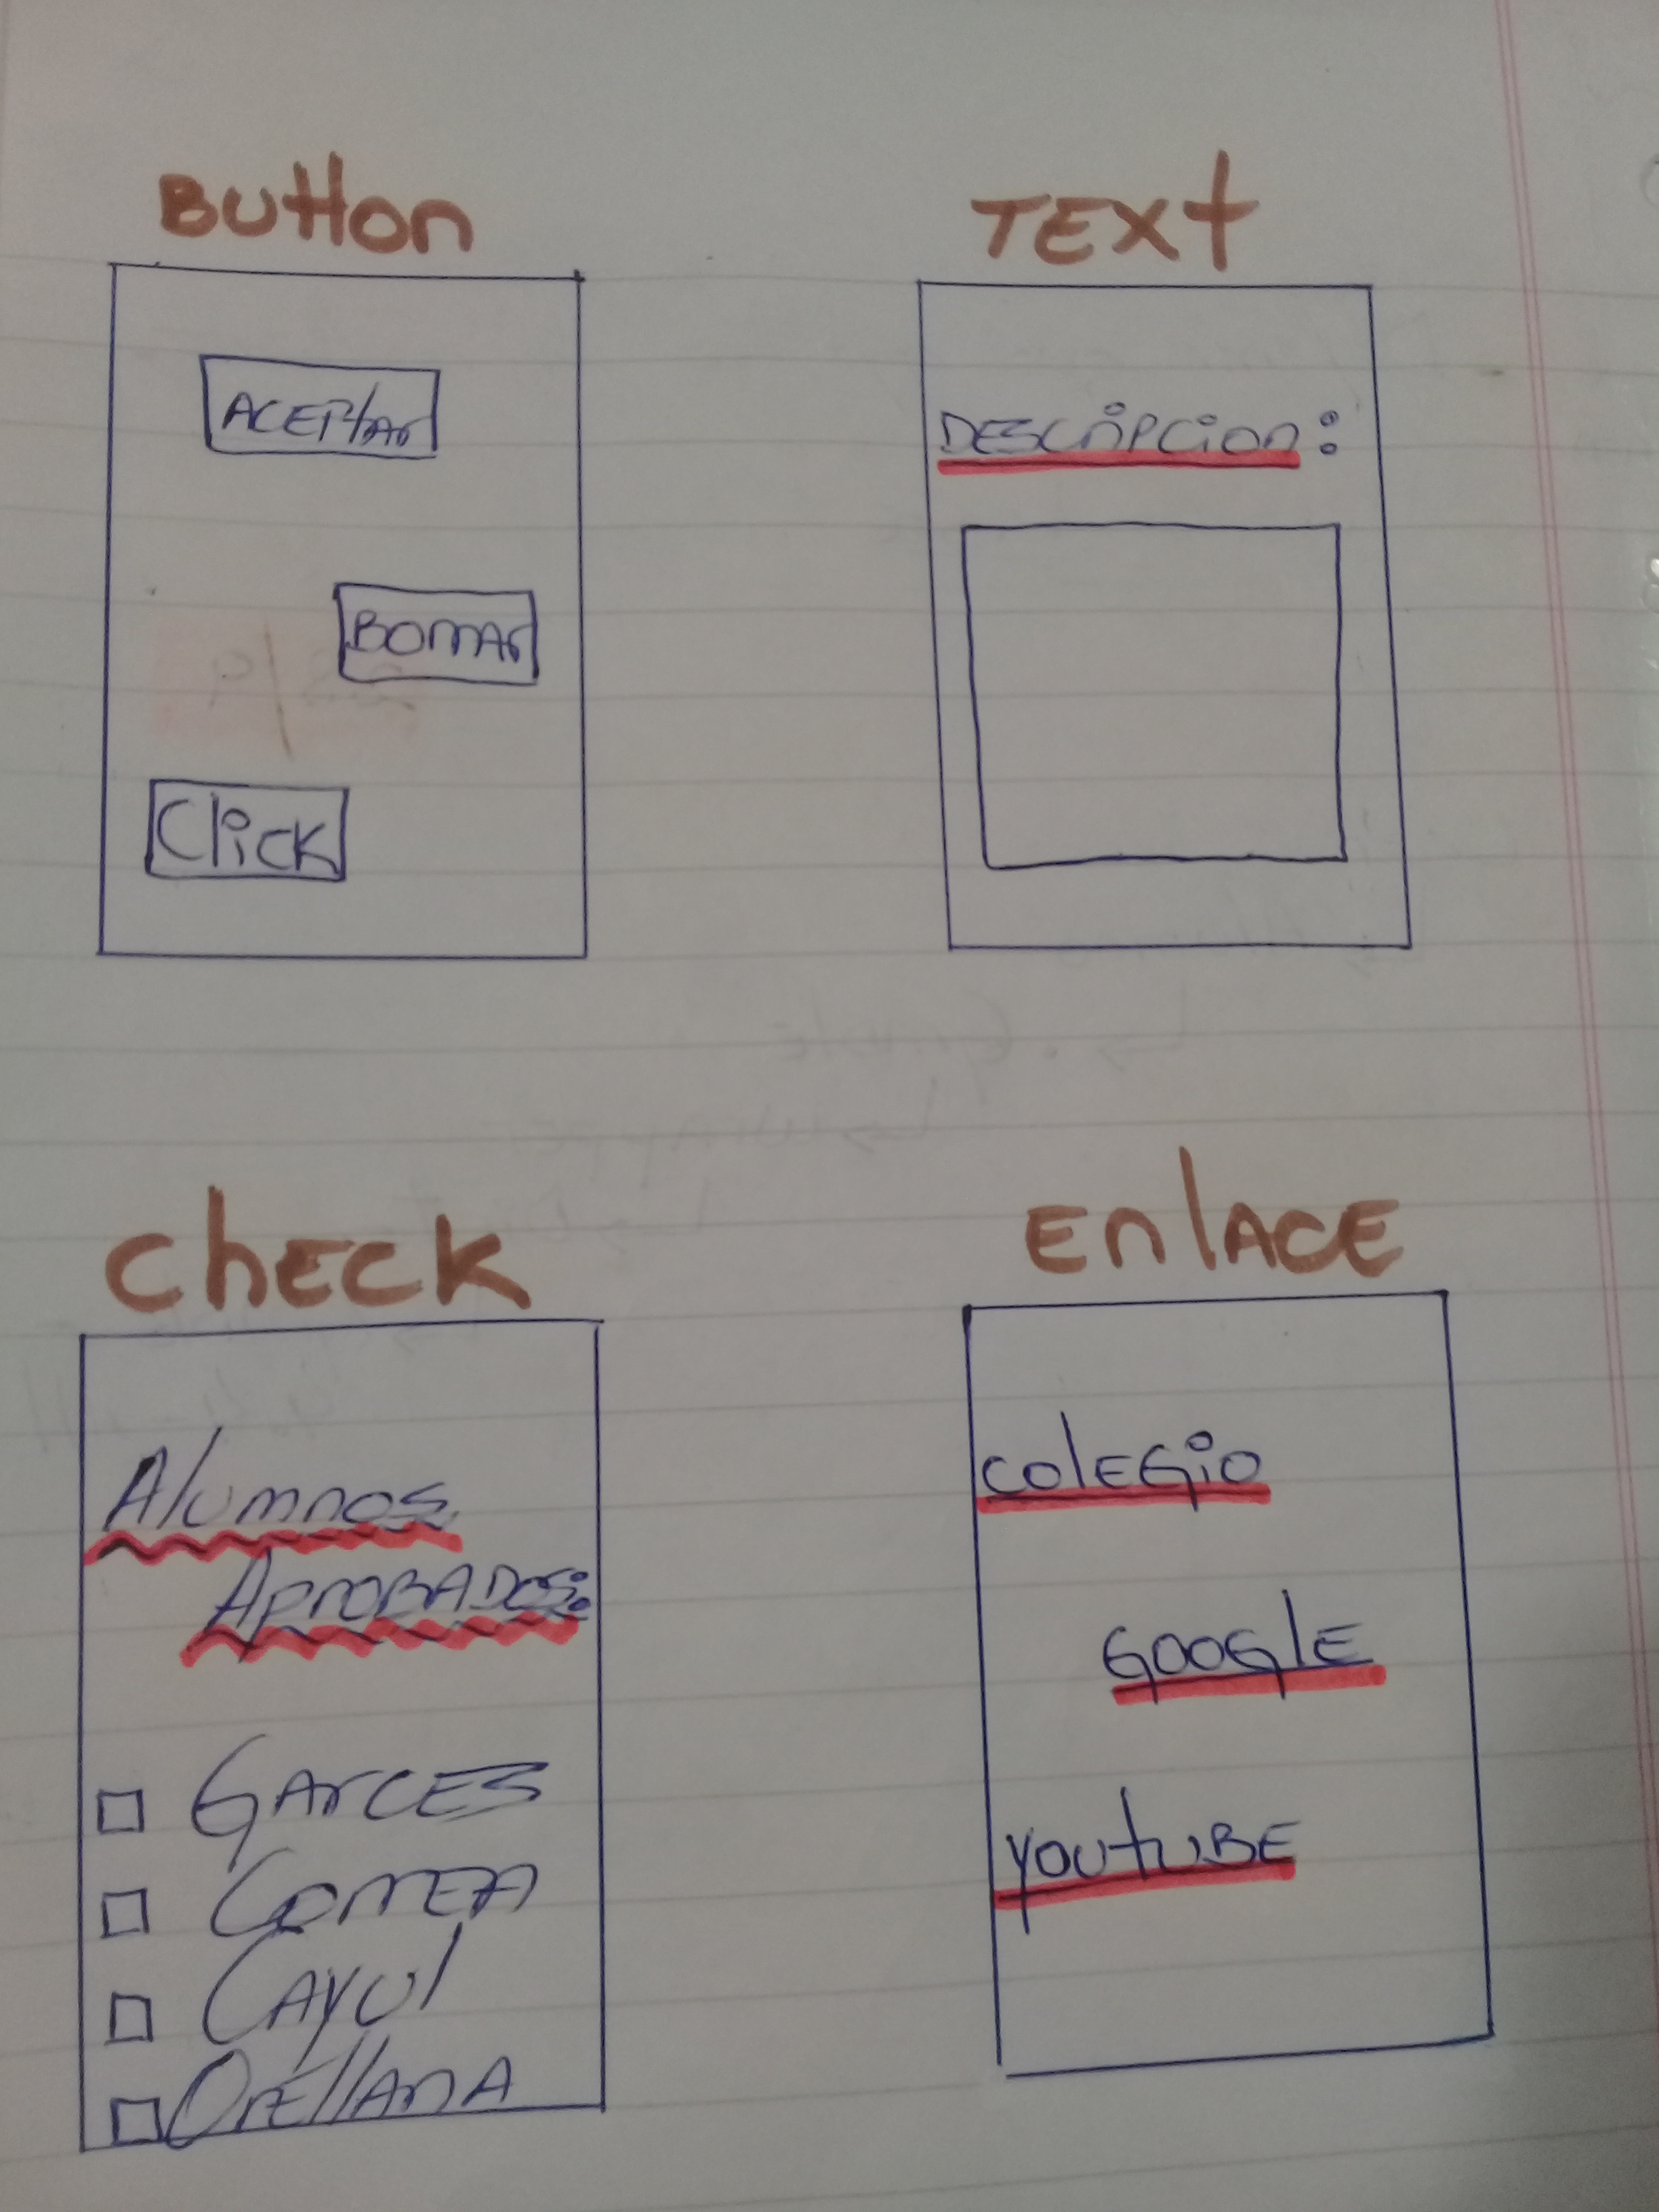 Button
ACEPtAr
BOrrAr
Click
TEXt
DEScripcion:
ChECK
Alumnos
AprOBADOS:
GArCES
COrrEA
CAyul
OrEllAnA
EnlACE
COlEGiO
GOOGlE
yOutuBE